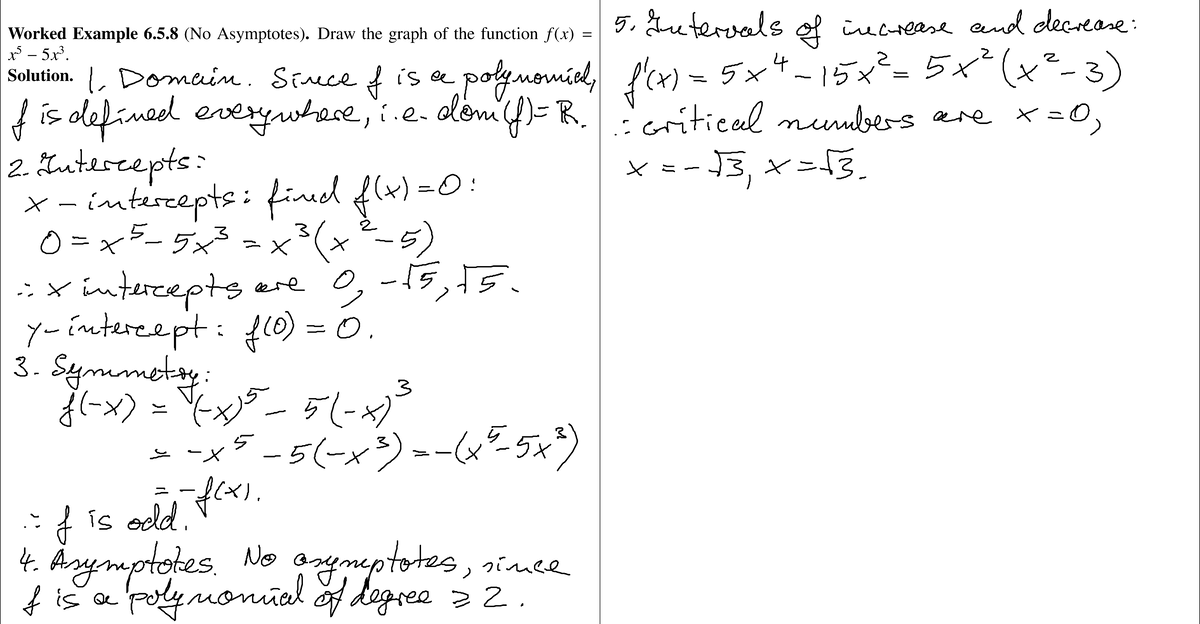 Worked Example 6.5.8 (No Asymptotes). Draw the graph of the function f(x) =
x⁵ – 5x³.
Solution. 1. Domain. Since f is a polynomial,
f is defined everywhere, i.e. dom(f) = ℝ.
2. Intercepts:
x – intercepts: find f(x) = 0:
0 = x⁵ – 5x³ = x³(x² – 5)
∴ x intercepts are 0, –√5, √5.
y – intercept: f(0) = 0.
3. Symmetry:
f(–x) = (–x)⁵ – 5(–x)³
= –x⁵ – 5(–x³) = –(x⁵ – 5x³)
= –f(x).
∴ f is odd.
4. Asymptotes. No asymptotes, since
f is a polynomial of degree ≥ 2.
5. Intervals of increase and decrease:
f'(x) = 5x⁴ – 15x² = 5x²(x² – 3)
∴ critical numbers are x = 0,
x = –√3, x = √3.